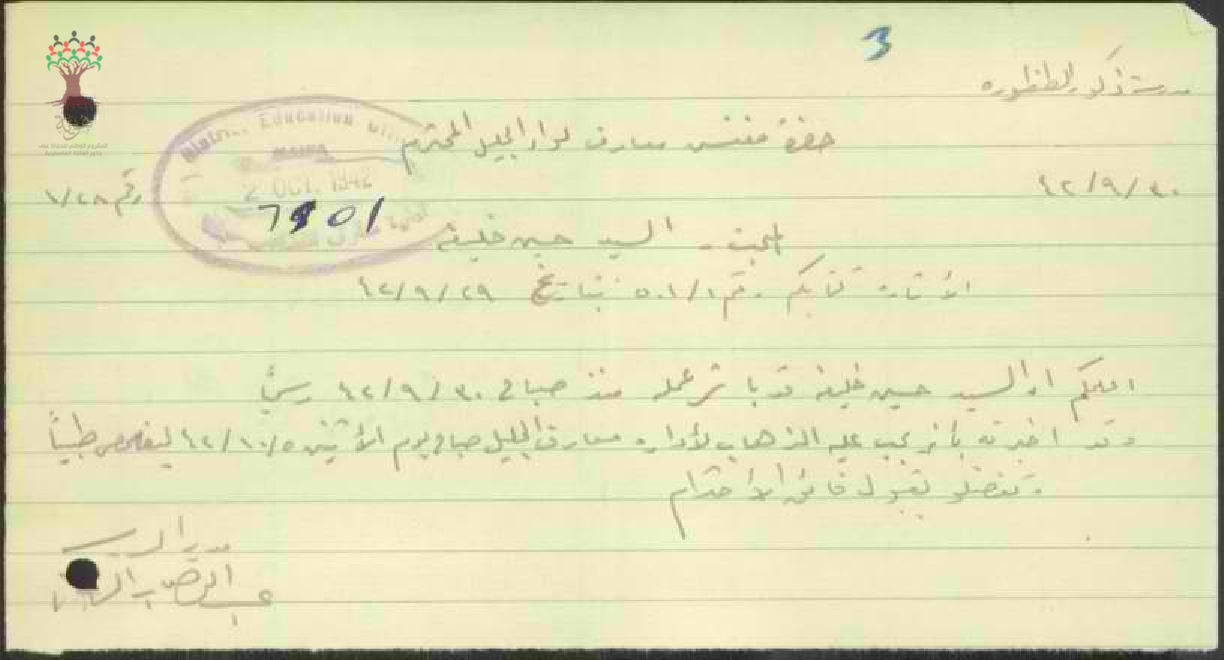 3
مدرسة ذكور الطنطوره
حضرة مفتش معارف لواء الجليل المحترم
District Education Office
HAIFA
2 OCT. 1942
7901
٤٢/٩/٣٠
رقم ١/٢٨
المبحث - السيد حسين خليفه
الأشارة كتابكم رقم ٥٠١/١ بتاريخ ٤٢/٩/٢٩
اعلمكم ان السيد حسين خليفه قد باشر عمله منذ صباح ٤٢/٩/٣٠ رسمياً
وقد اخبرته بأنه يجب عليه الذهاب لأدارة معارف الجليل صباح يوم الأثنين ٤٢/١٠/٥ ليفحص طبياً
وتفضلو بقبول فائق الأحترام
مدير المدرسة
عبد